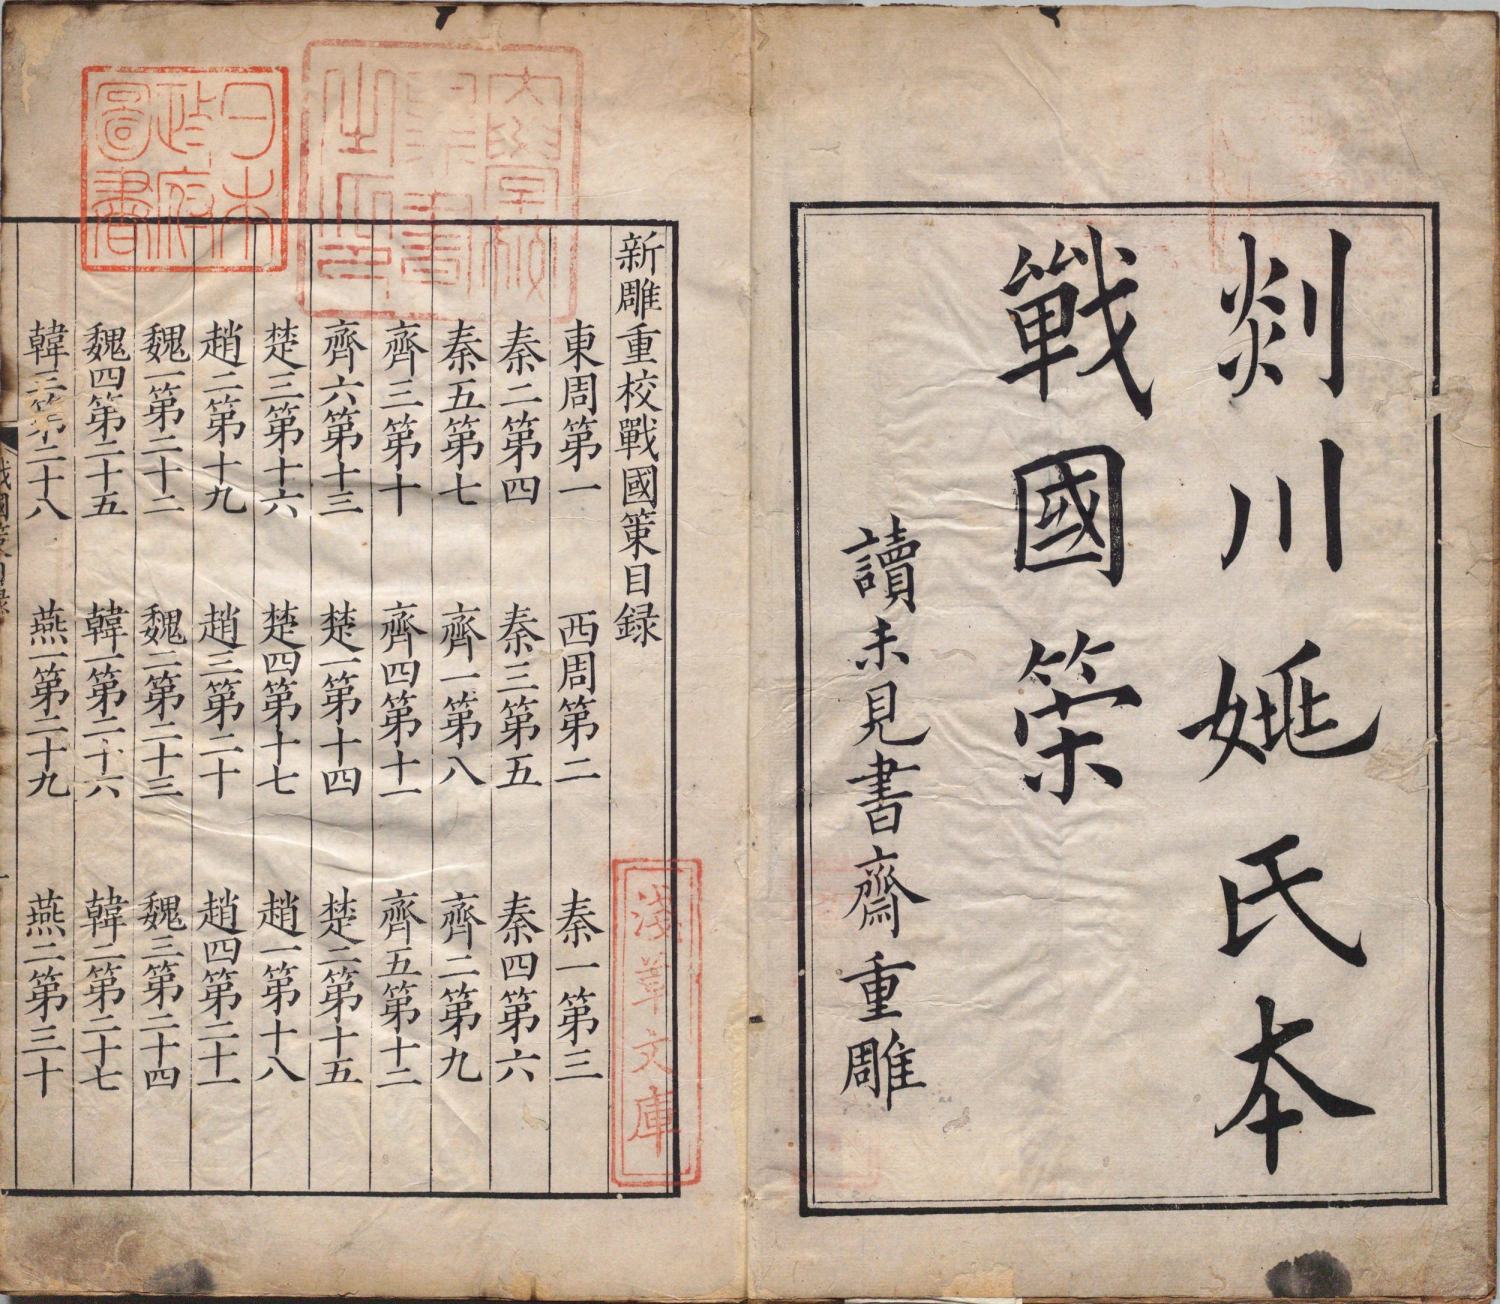 剡川姚氏本
戰國策
讀未見書齋重雕
新雕重校戰國策目録
東周第一 西周第二 秦一第三
秦二第四 秦三第五 秦四第六
秦五第七 齊一第八 齊二第九
齊三第十 齊四第十一 齊五第十二
齊六第十三 楚一第十四 楚二第十五
楚三第十六 楚四第十七 趙一第十八
趙二第十九 趙三第二十 趙四第二十一
魏一第二十二 魏二第二十三 魏三第二十四
魏四第二十五 韓一第二十六 韓二第二十七
韓三第二十八 燕一第二十九 燕二第三十
戰國策目録
日本
政府
圖書
淺草文庫